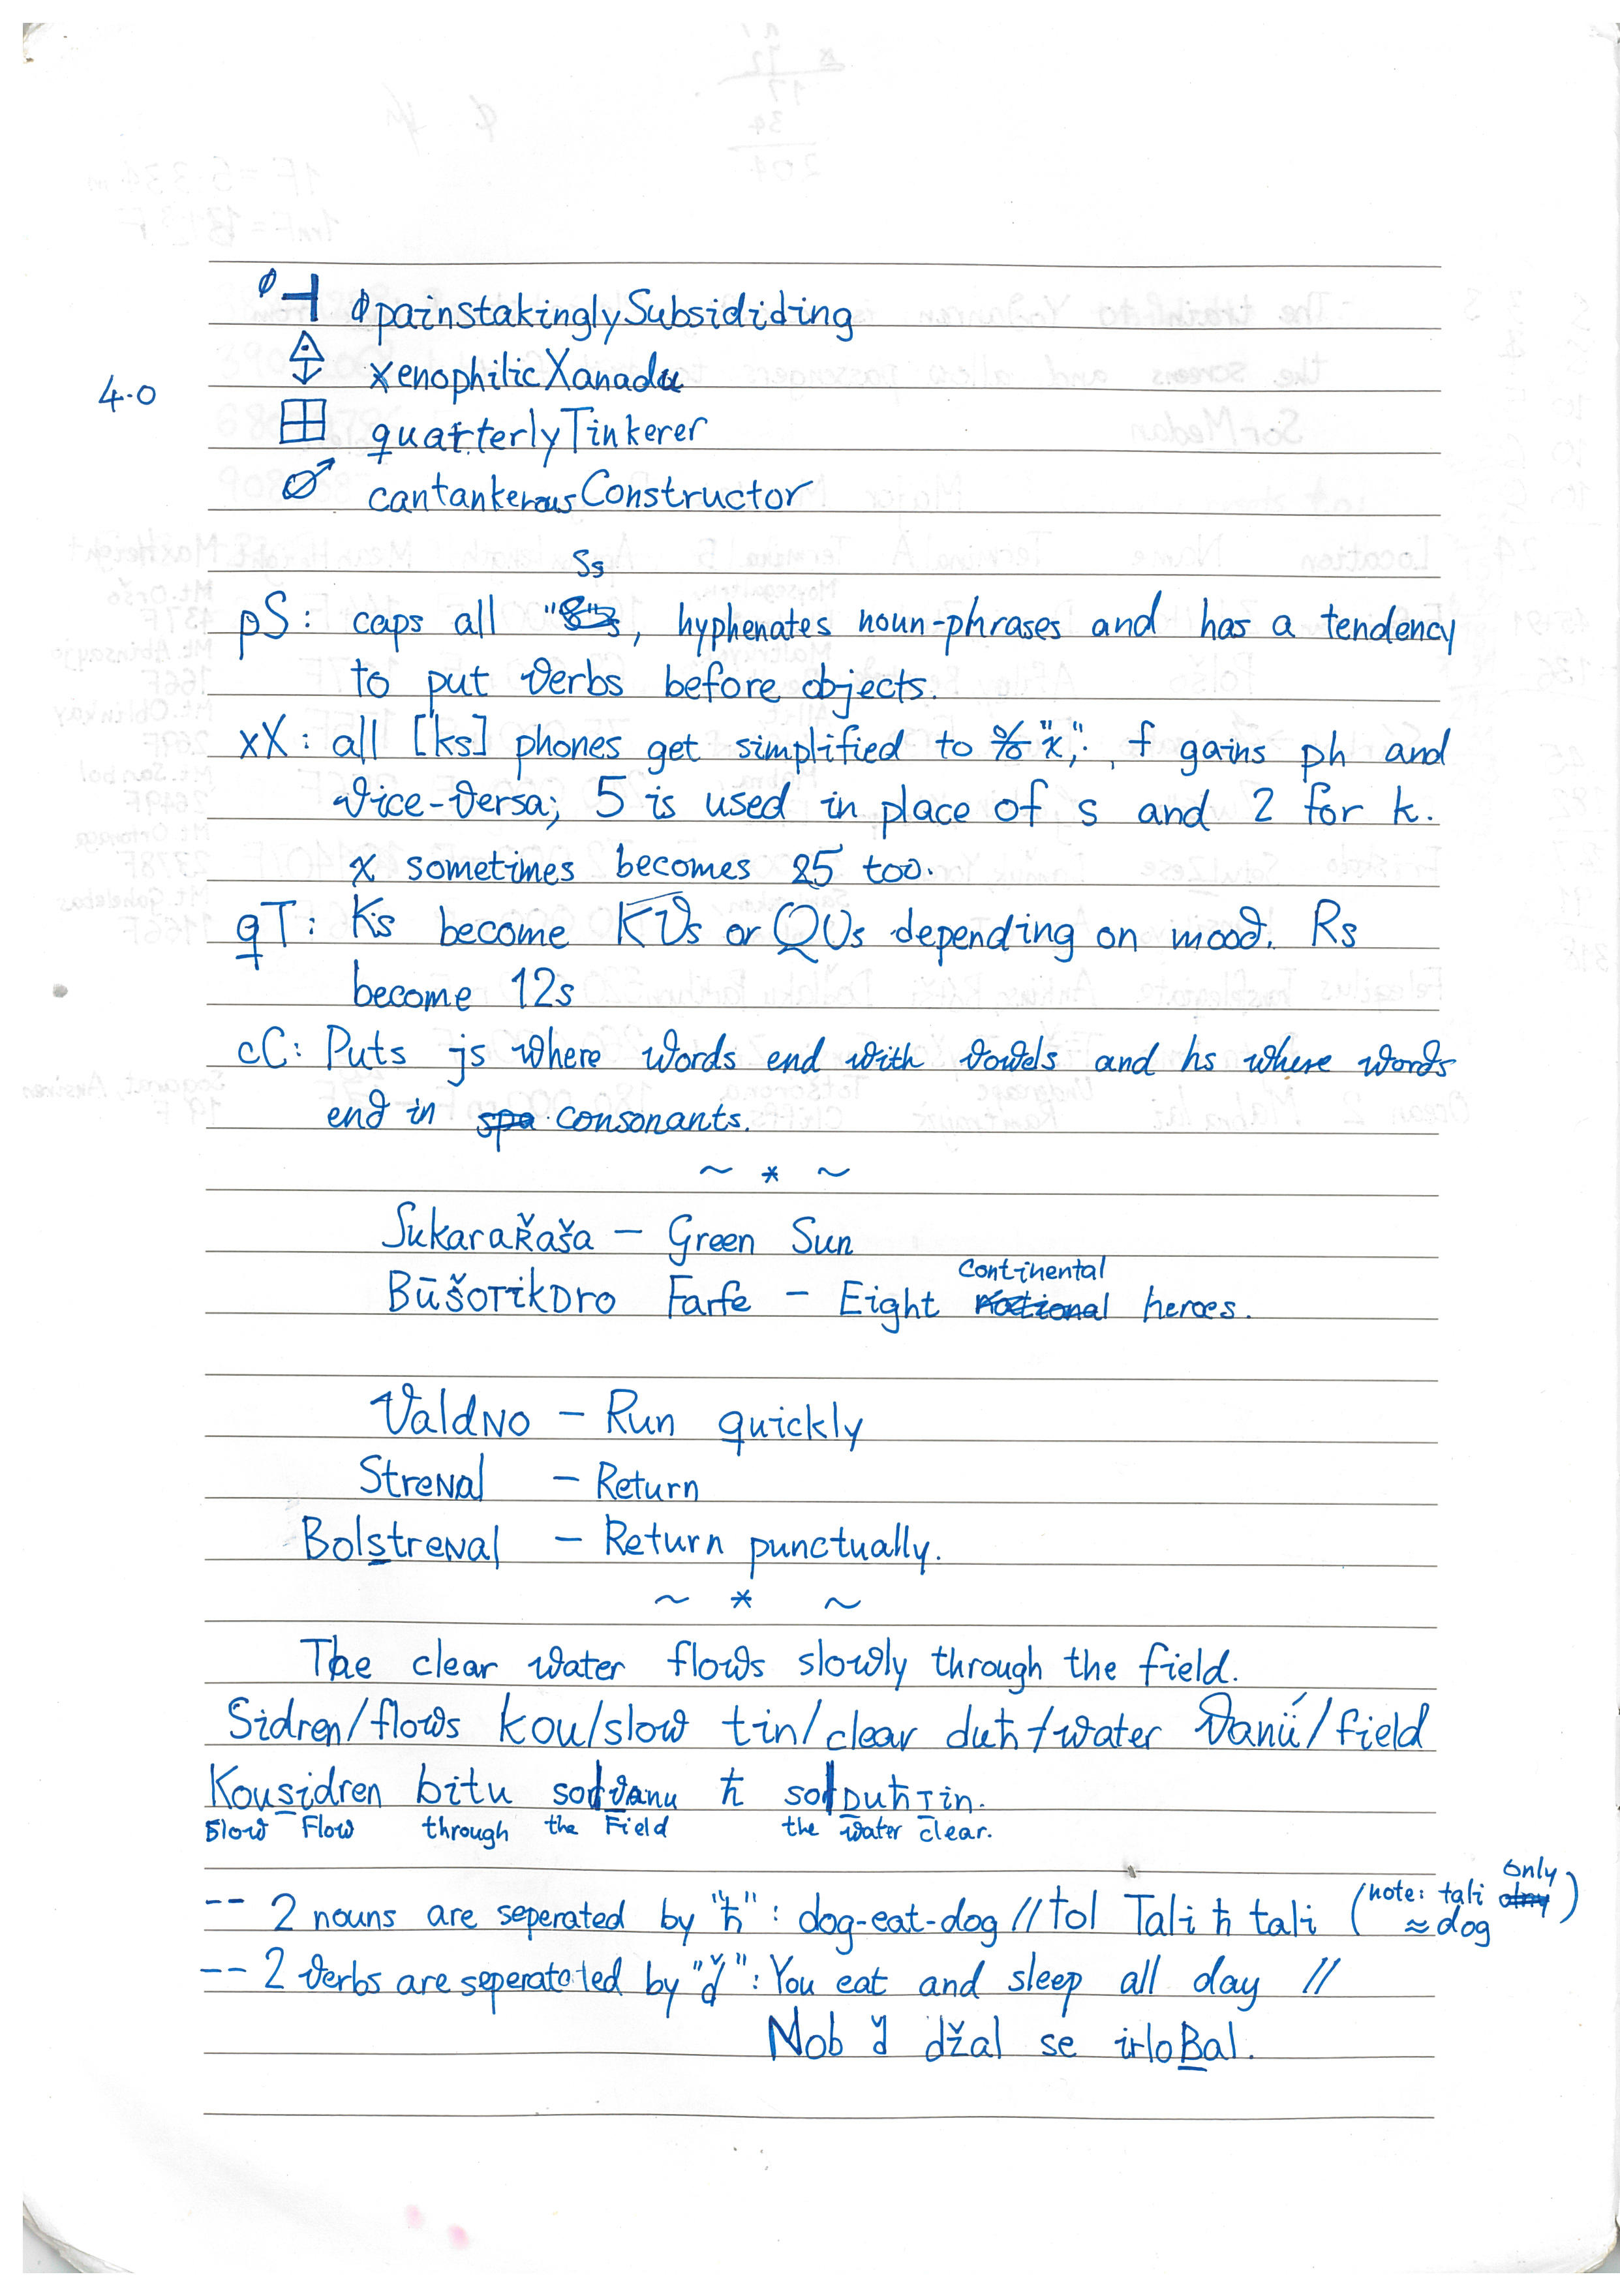 ϕpainstakinglySubsididing
xenophilicXanadu
4.0
quarterlyTinkerer
cantankerousConstructor
Ss
pS: caps all " ", hyphenates noun-phrases and has a tendency
to put verbs before objects.
xX: all [ks] phones get simplified to "x"; f gains ph and
vice-versa; 5 is used in place of s and 2 for k.
x sometimes becomes 25 too.
qT: Ks become KVs or QUs depending on mood. Rs
become 12s
cC: Puts js where words end with vowels and hs where words
end in consonants.
~ * ~
SukaraŘaša – Green Sun
BūšoTikDro Farfe – Eight Continental heroes.
ValdNo – Run quickly
StreNal – Return
BolstreNal – Return punctually.
~ * ~
The clear water flows slowly through the field.
Sidren/flows kou/slow tin/clear duħ/water Vanu/field
Kousidren bitu solvanu ħ solDuħTin.
Slow Flow through the Field the water clear.
-- 2 nouns are seperated by "ħ": dog-eat-dog // tol Tali ħ tali (note: tali only ≈ dog)
-- 2 verbs are seperatated by "ɣ̌": You eat and sleep all day //
Nob džal se irloBal.